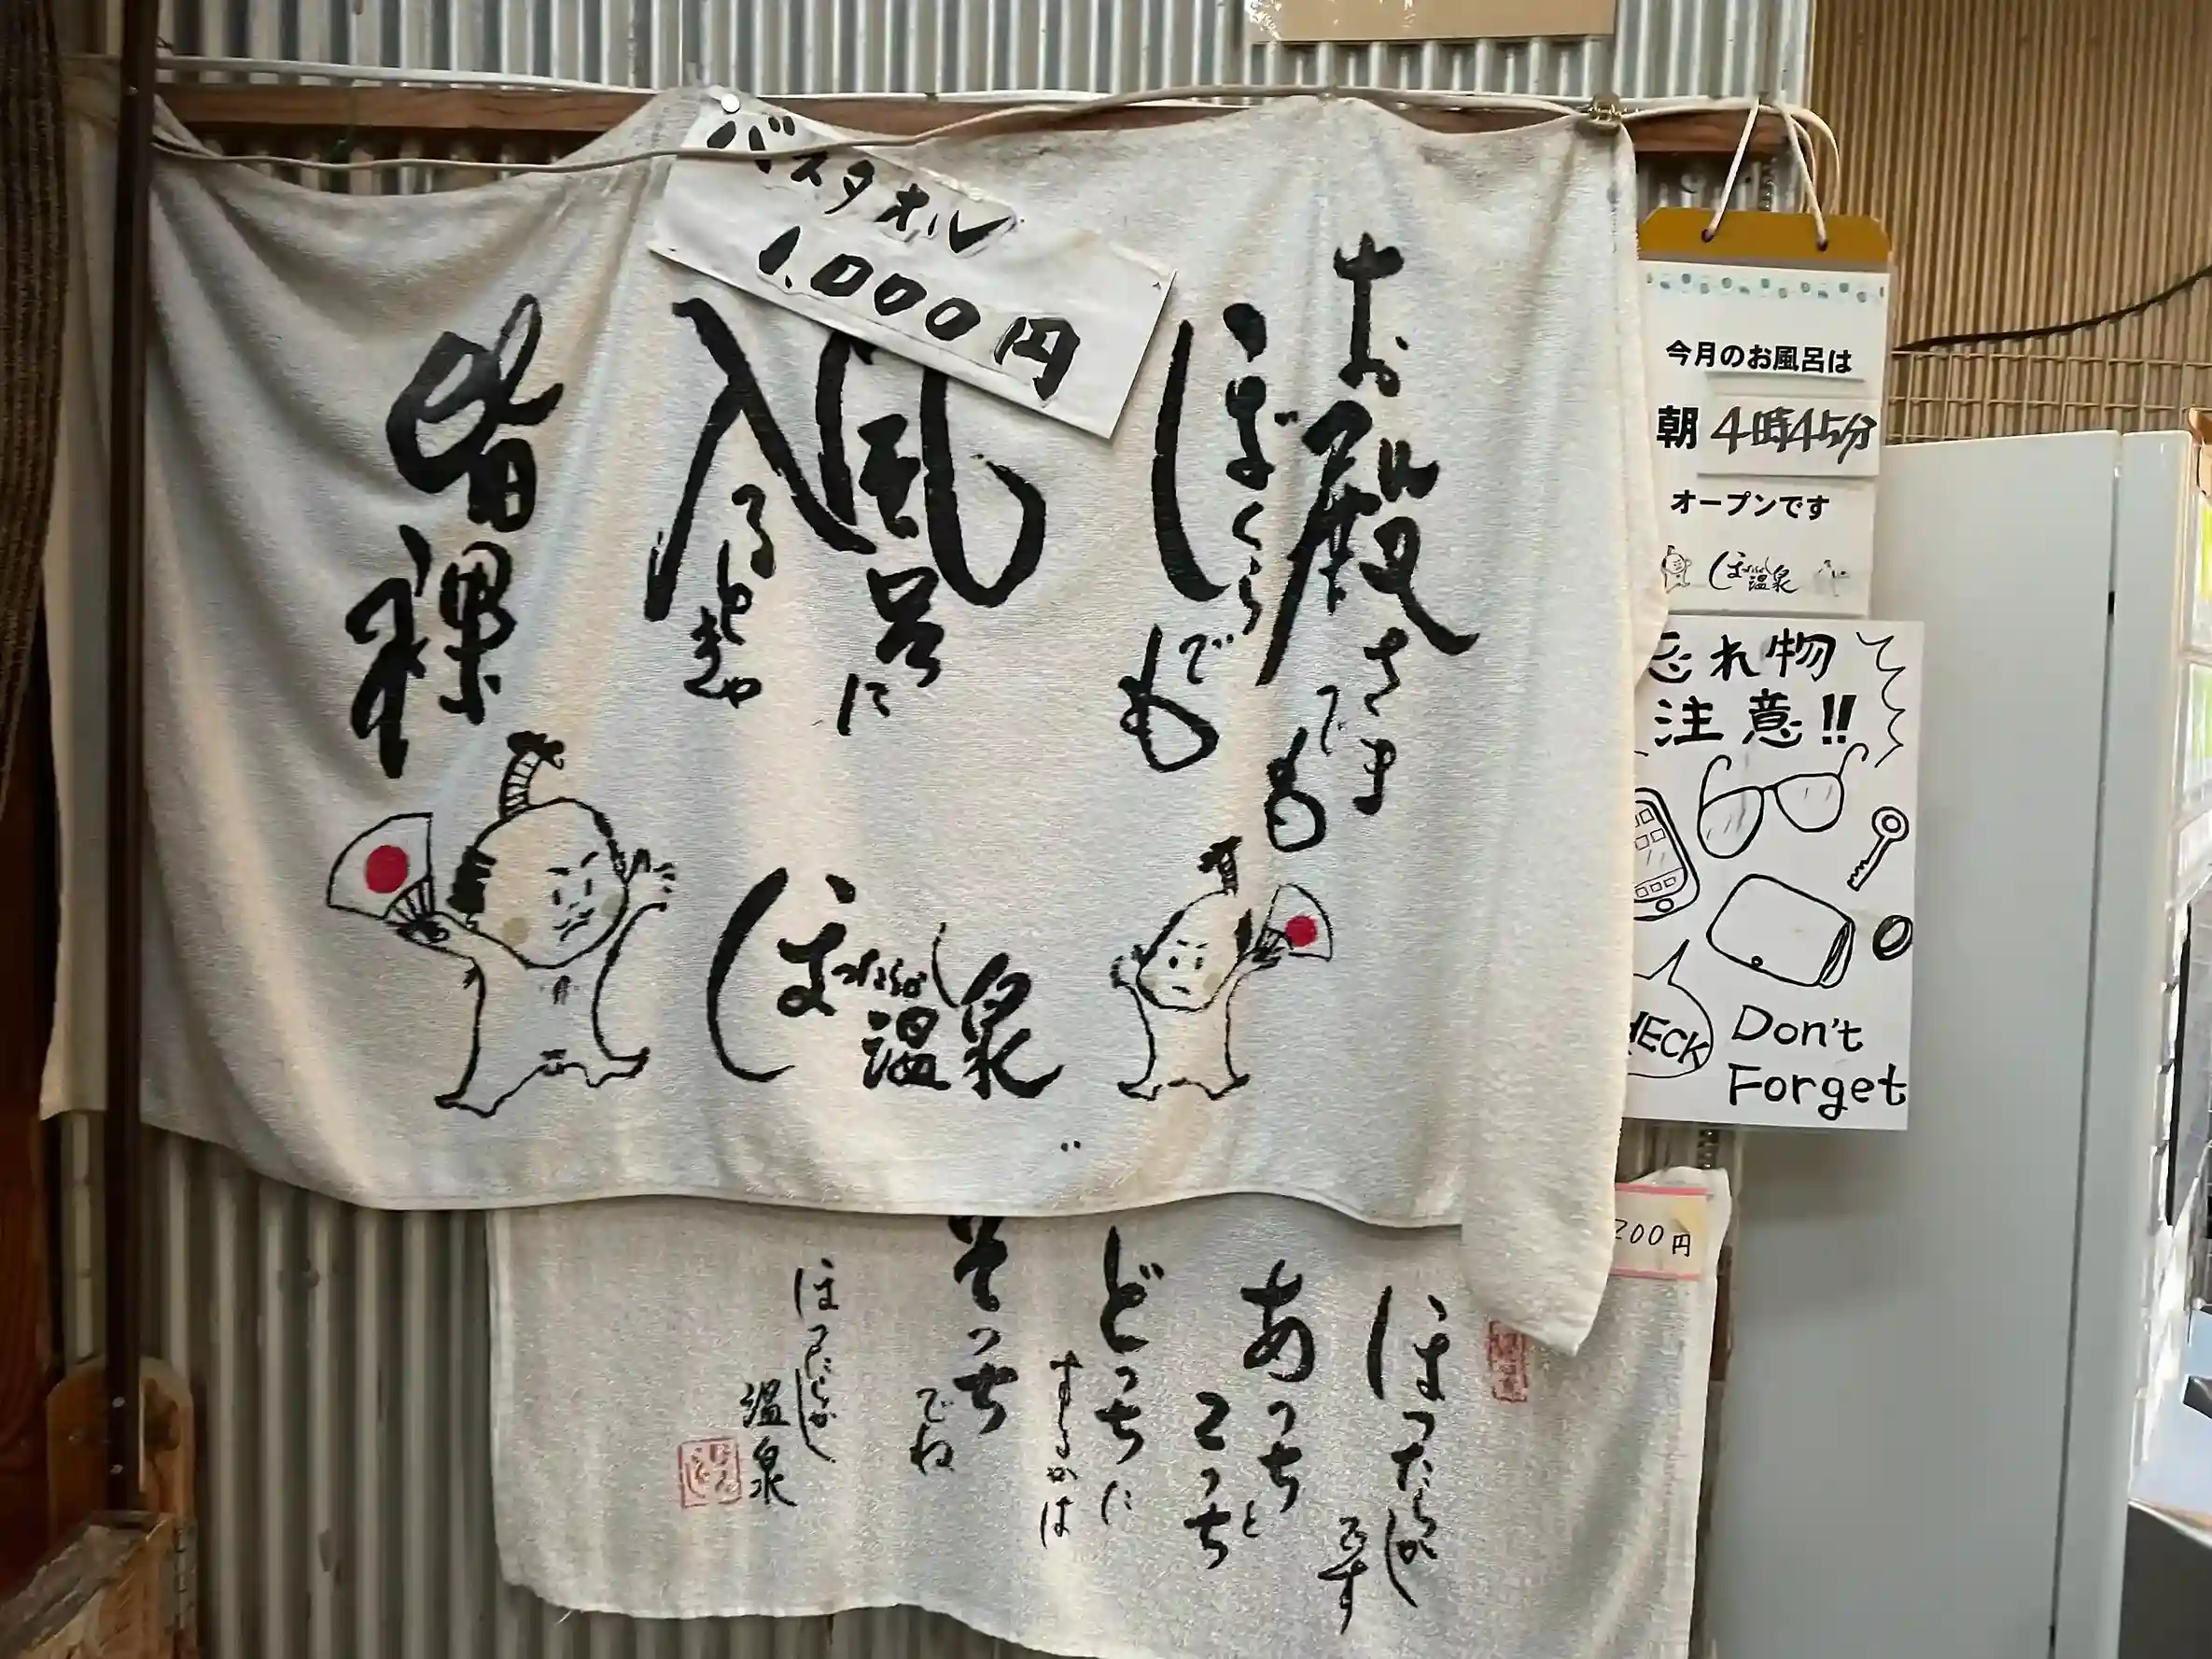 バスタオル
1,000円
お殿さまでも
ぼくらでも
風呂に
入るときゃ
皆裸
ほったらかし温泉
今月のお風呂は
朝4時45分
オープンです
ほったらかし温泉
忘れ物
注意!!
HECK
Don't
Forget
200円
ほったらかし
です
あっちと
こっち
どっちに
するかは
そっち
でね
ほったらかし
温泉